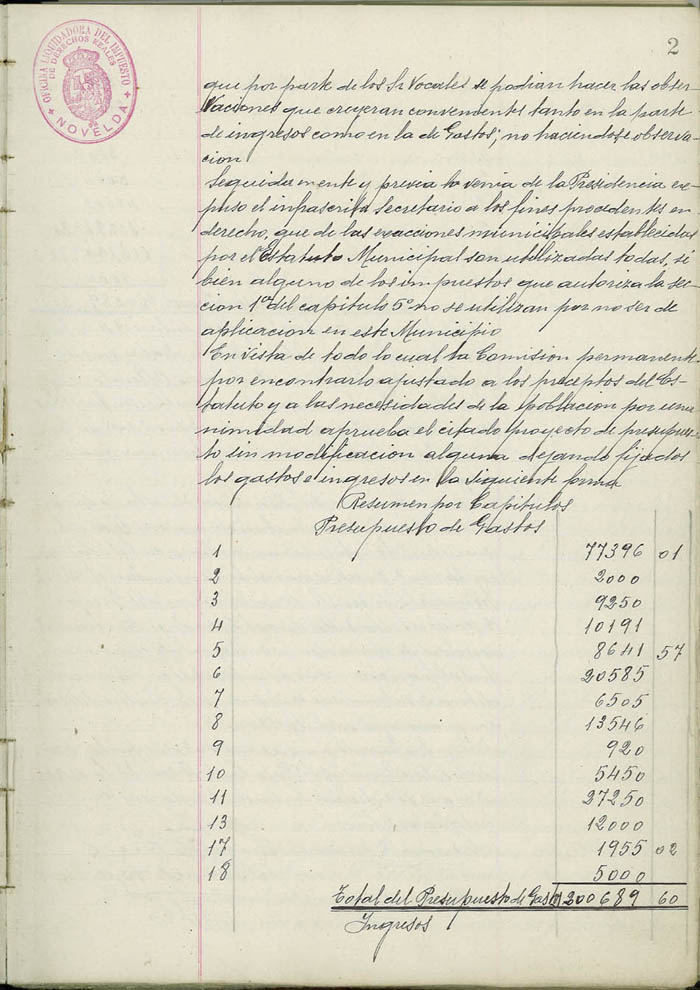 2
OFICINA LIQUIDADORA DEL IMPUESTO
DE DERECHOS REALES
NOVELDA
que por parte de los Sr Vocales se podian hacer las obser
vaciones que creyeran convenientes tanto en la parte
de ingresos como en la de Gastos; no haciendose observa-
cion
Seguidamente y previa la venia de la Presidencia ex-
puso el infrascrito Secretario a los fines procedentes en
derecho, que de las exacciones municipales establecidas
por el Estatuto Municipal son utilizadas todas, si
bien alguno de los impuestos que autoriza la sec-
cion 1ª del capitulo 5º no se utilizan por no ser de
aplicacion en este Municipio
En vista de todo lo cual la Comision permanente
por encontrarlo ajustado a los preceptos del Es-
tatuto y a las necesidades de la poblacion por una-
nimidad aprueba el citado proyecto de presupues-
to sin modificacion alguna dejando fijados
los gastos e ingresos en la siguiente forma
Resumen por Capitulos
Presupuesto de Gastos
1 77396 01
2 2000
3 9250
4 10191
5 8641 57
6 20585
7 6505
8 13546
9 920
10 5450
11 27250
13 12000
17 1955 02
18 5000
Total del Presupuesto de Gastos 200689 60
Ingresos